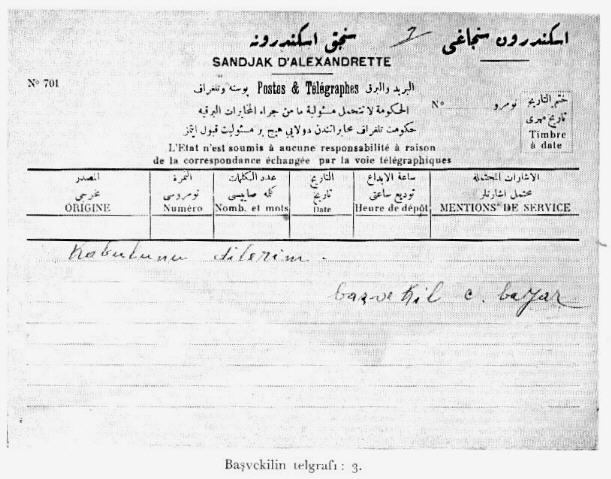 سنجق اسكندرونه 7 اسكندرون سنجاغی
SANDJAK D'ALEXANDRETTE
N° 701
البريد والبرق Postes & Télégraphes پوسته وتلغراف
الحكومة لا تتحمل مسئولية ما من جراء المخابرات البرقيه
حكومت تلغراف مخابراتندن دولايى هيچ بر مسئوليت قبول ايتمز
L'Etat n'est soumis à aucune responsabilité à raison
de la correspondance échangée par la voie télégraphiques
N° نومرو
ختم التاريخ
تاريخ مهرى
Timbre
à date
المصدر النمرة عدد الكلمات التاريخ ساعة الايداع الاشارات المحتملة
مخرجى نومروسى كله صاييسى تاريخ توديع ساعتى محتمل اشارتلر
ORIGINE Numéro Nomb. et mots Date Heure de dépôt MENTIONS DE SERVICE
Kabulunu dilerim.
başvekil c. bayar
Başvekilin telgrafı : 3.